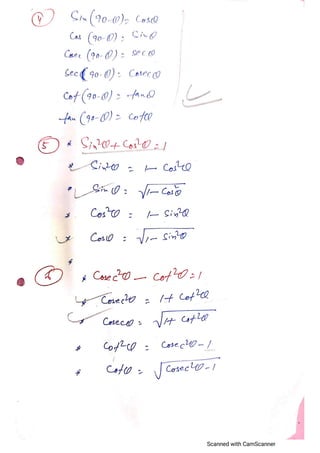 ④ Sin (90-θ) = Cosθ
Cos (90-θ) = Sinθ
Cosec (90-θ) = Secθ
Sec (90-θ) = Cosecθ
Cot (90-θ) = tanθ
tan (90-θ) = Cotθ
⑤ * Sin²θ + Cos²θ = 1
* Sin²θ = 1- Cos²θ
* Sinθ = √1- Cos²θ
* Cos²θ = 1- Sin²θ
* Cosθ = √1- Sin²θ
*
* Cosec²θ - Cot²θ = 1
Cosec²θ = 1+ Cot²θ
Cosecθ = √1+ Cot²θ
* Cot²θ = Cosec²θ - 1
* Cotθ = √Cosec²θ - 1
Scanned with CamScanner